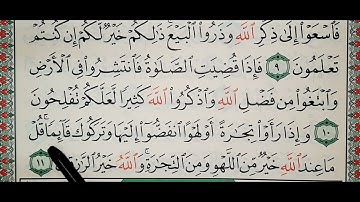 فَٱسْعَوْا۟ إِلَىٰ ذِكْرِ ٱللَّهِ وَذَرُوا۟ ٱلْبَيْعَ ۚ ذَٰلِكُمْ خَيْرٌ لَّكُمْ إِن كُنتُمْ
تَعْلَمُونَ ٩ فَإِذَا قُضِيَتِ ٱلصَّلَوٰةُ فَٱنتَشِرُوا۟ فِى ٱلْأَرْضِ
وَٱبْتَغُوا۟ مِن فَضْلِ ٱللَّهِ وَٱذْكُرُوا۟ ٱللَّهَ كَثِيرًا لَّعَلَّكُمْ تُفْلِحُونَ
١٠ وَإِذَا رَأَوْا۟ تِجَٰرَةً أَوْ لَهْوًا ٱنفَضُّوٓا۟ إِلَيْهَا وَتَرَكُوكَ قَآئِمًا ۚ قُلْ
مَا عِندَ ٱللَّهِ خَيْرٌ مِّنَ ٱللَّهْوِ وَمِنَ ٱلتِّجَٰرَةِ ۚ وَٱللَّهُ خَيْرُ ٱلرَّٰزِقِينَ ١١